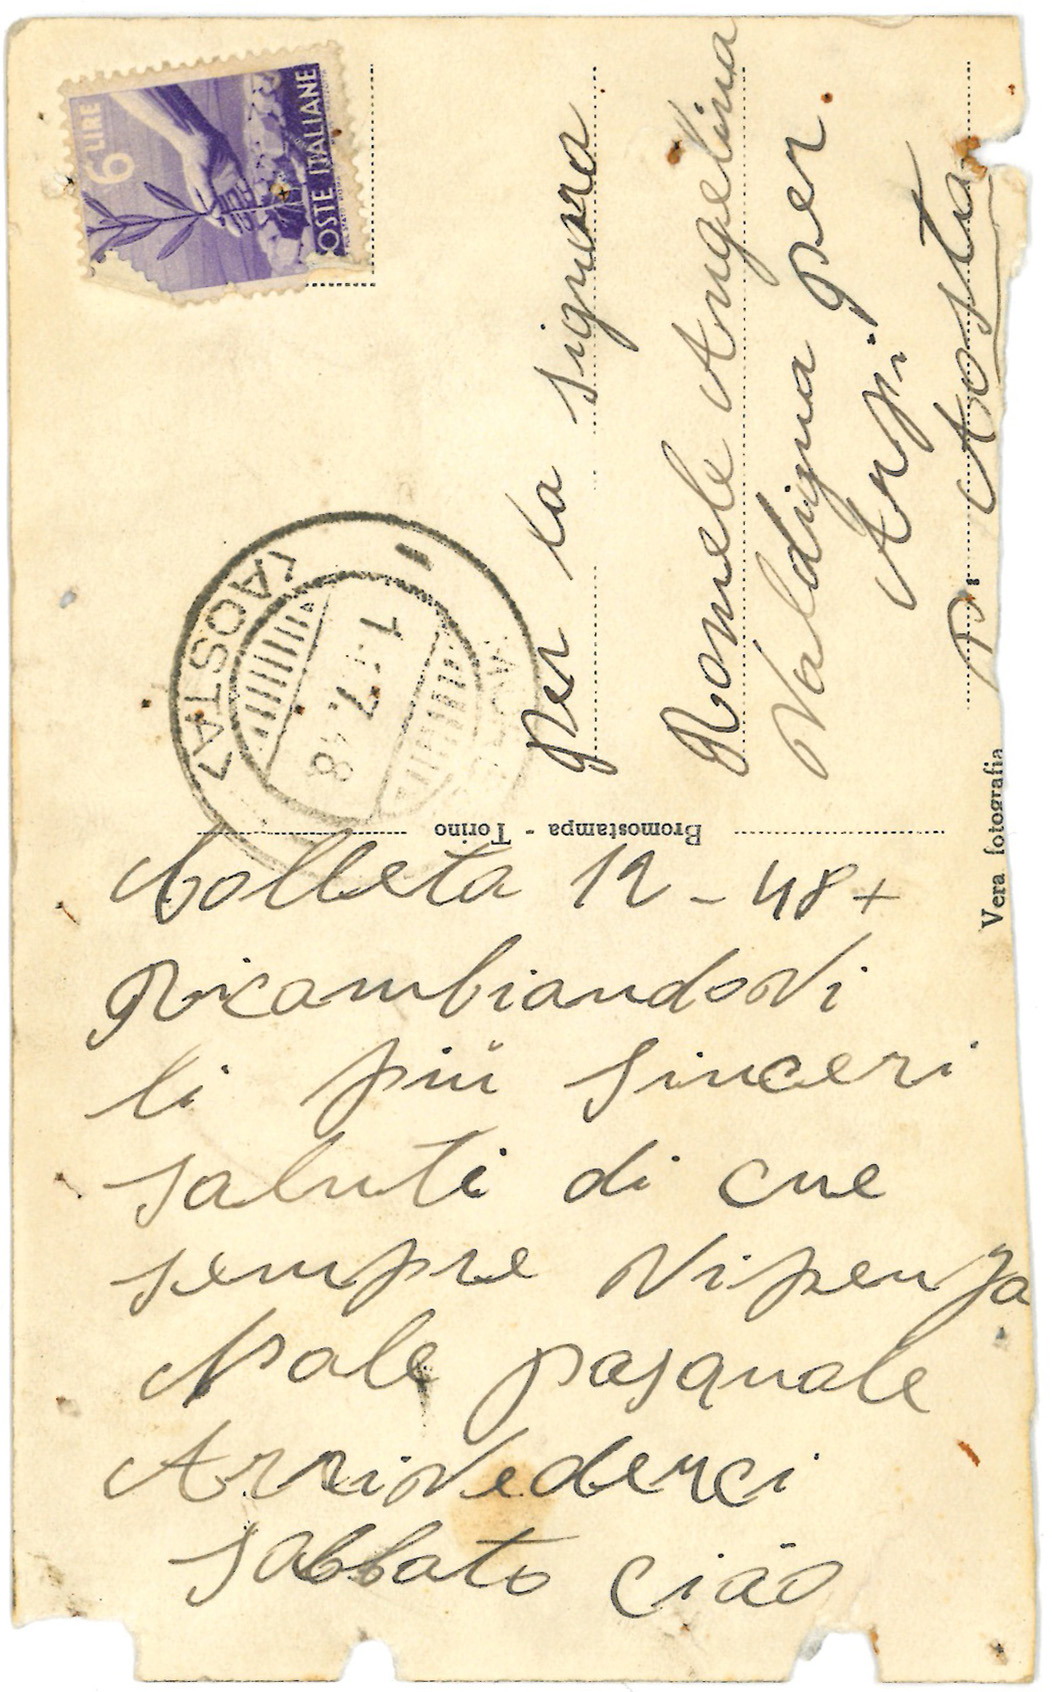 6 LIRE
POSTE ITALIANE
(AOSTA)
7.48
Per la signora
Romele Angelina
Valdigna per
Arpi.
P. Aosta
Bromostampa - Torino
Vera fotografia
Molleta 12 - 48 +
Ricambiandovi
li più sinceri
saluti di cue
sempre Vi penza
Male pasquale
Arrivederci
sabbato ciäo